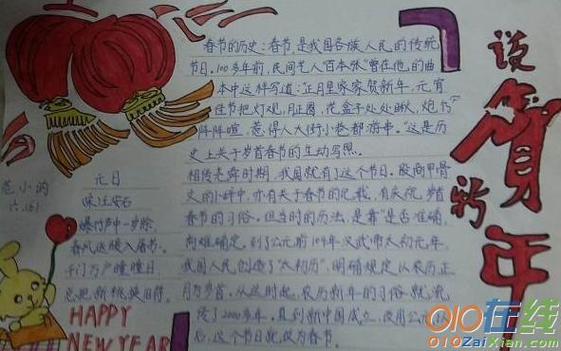 春节的历史：春节，是我国各族人民的传统
节日。100多年前，民间艺人"百本张"曾在他的曲
本中这样写道：正月里家家贺新年，元宵
佳节把灯观，月正圆，花盒子处处瞅，炮竹
阵阵喧，惹得人大街小巷都游串。"这是历
史上关于岁首春节的生动写照
相传尧舜时期，我国就有了这个节日。殷商甲骨
文的卜辞中，亦有关于春节的记载，有庆祝岁首
春节的习俗。但当时的历法，是
否准确，
尚难确定。到了公元前104年汉武帝太初元年，
我国人民创造了"太初历"，明确规定以农历正
月为岁首。从这时起，农历新年的习俗就流
传了2000多年。直到新中国成立，改用公
后，这个节日就改为春节。
说
贺
新
年
范小的
六.
元日
宋 王安石
爆竹声中一岁除，
春风送暖入屠苏。
千门万户曈曈日，
总把新桃换旧符。
HAPPY
NEW YEAR
010在线
010ZaiXian.com